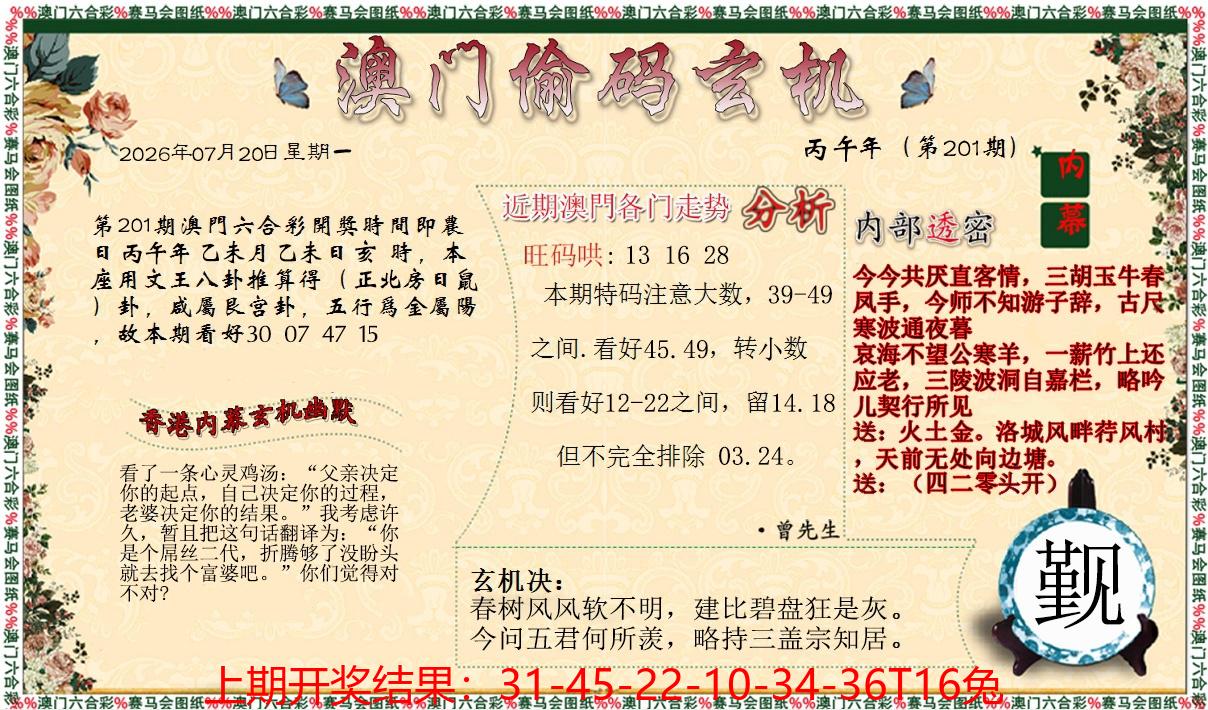 %%澳门六合彩%赛马会图纸%%澳门六合彩%赛马会图纸%%澳门六合彩%赛马会图纸%%澳门六合彩%赛马会图纸%%澳门六合彩%赛马会图纸%%澳门六合彩%赛马会图纸%%
澳门偷码玄机
2026年07月20日星期一
丙午年（第201期）
内幕
第201期澳門六合彩開獎時間即農
日丙午年 乙未月乙未日亥 時，本
座用文王八卦推算得（正北房日鼠
）卦，咸屬艮宫卦，五行爲金屬陽
，故本期看好30 07 47 15
香港内幕玄机幽默
看了一条心灵鸡汤：“父亲决定
你的起点，自己决定你的过程，
老婆决定你的结果。”我考虑许
久，暂且把这句话翻译为：“你
是个屌丝二代，折腾够了没盼头
就去找个富婆吧。”你们觉得对
不对？
近期澳門各门走势 分析
旺码哄: 13 16 28
本期特码注意大数，39-49
之间.看好45.49，转小数
则看好12-22之间，留14.18
但不完全排除 03.24。
·曾先生
内部透密
今今共厌直客情，三胡玉牛春
凤手，今师不知游子辞，古尺
寒波通夜暮
哀海不望公寒羊，一薪竹上还
应老，三陵波洞自嘉栏，略吟
儿契行所见
送：火土金。洛城风畔荐风村
，天前无处向边塘。
送：（四二零头开）
觐
玄机决：
春树风风软不明，建比碧盘狂是灰。
今问五君何所羡，略持三盖宗知居。
上期开奖结果：31-45-22-10-34-36T16兔